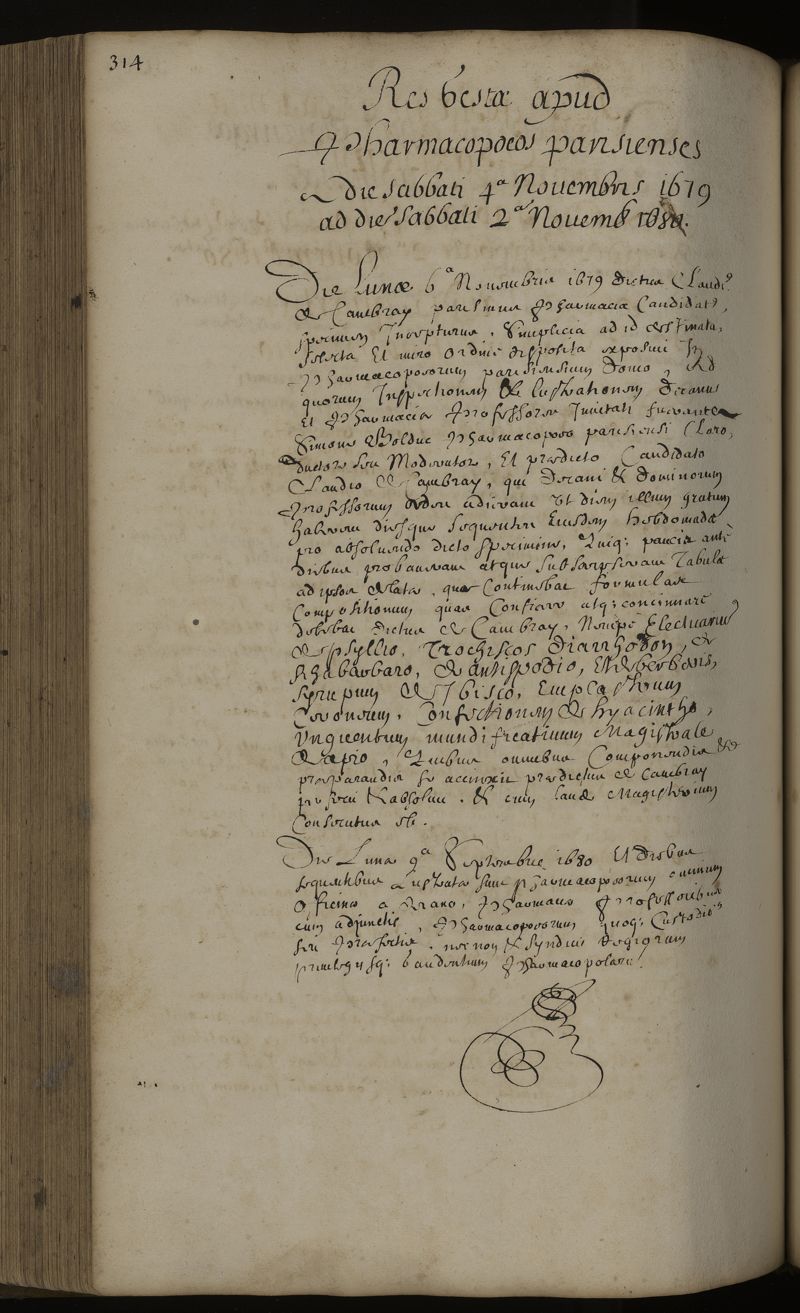 314
Res Gestæ apud
Pharmacopoeos parisienses
A die sabbati 4ª Novembris 1679
ad diem sabbati 2ª Novemb 1680.
Die Lunæ 6ª Novembris 1679 dictus Claudi9
de Cambray parisinus Pharmaciæ Candidat9,
specimen Inceptu1us, Simplicia ad id destinata,
selecta Et miro ordine disposita exposuit In
Pharmacopoeorum parisiensium domo, Ad
quorum Inspectionem & lustrationem Decanus
Et Pharmaciæ Professores Invitati fuerunt a
Simone Bolduc Pharmacopoeo parisiensi Claro,
ductore seu Moderatore, Et prædicto Candidato
Claudio de Cambray, qui Decani & dominorum
Professorum ordine adierunt Et diem illum gratum
habere diesque sequentes Eiusdem hebdomadæ
pro absolvendo dicto specimine, Quiq; paucis ante
diebus probaverunt atque subscripserunt Tabulæ
ad ipsos delatæ, quæ Continebat formulas
Compositionum quas Conficere atq; concinnare
debebat dictus de Cambray, Nempe Electuarium
de psyllio, Trochiscos diarrhodon, de
Rhabarbaro, de antispodio, Et de berberis,
syrupum de Ibisco, Emplastrum
Ceroneum, Confectionem de hyacintho,
Unguentum mundificativum Magistrale
de apio, Quibus omnibus Componendis &
præparandis se accinxit prædictus de Cambray
perfecit & absolvit. & cum laude Magisterium
Consecutus est.
Die Lunæ 9ª Septembris 1680 Et diebus
sequentibus Lustratæ sunt pharmacopoeorum omnium
officinæ a Decano, Pharmaciæ Professoribus
cum adjunctis, Pharmacopoeorum quoq; Custodibus
seu Præfectis, necnon & syndicis Regiorum
privilegiisq; gaudentium Pharmacopolarum.